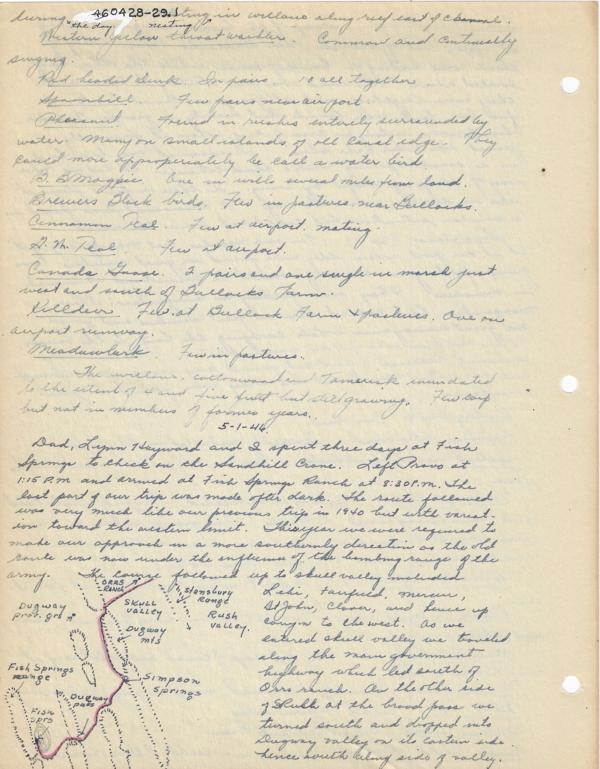 460428-29.1
during "the day" nesting in willows along reef east of channel.
Western yellow throat warbler. Common and continually
singing.
Red headed Duck. In pairs. 10 all together
Spoonbill. Few pairs near air port
Pheasant. Found in rushes entirely surrounded by
water. Many on small islands of old canal edge. They
could more appropriately be call a water bird
B. B Magpie. One in wills several miles from land.
Brewers Black birds. Few in pastures near Bullocks.
Cinnamon Teal. Few at airport. mating.
G. W. Teal Few at airport.
Canada Goose. 2 pairs and one single in marsh just
west and south of Bullocks Farm.
Killdeer. Few at Bullock Farm & pastures. One on
airport runway.
Meadowlark. Few in pastures.
The willows, cottonwood and Tamerisk inundated
to the extent of 4 and five feet but still growing. Few carp
but not in numbers of former years.
5-1-46
Dad, Lynn Hayward and I spent three days at Fish
Springs to check on the Sandhill Crane. Left Provo at
1:15 P.M and arrived at Fish Springs Ranch at 8:30 P.M. The
last part of our trip was made after dark. The route followed
was very much like our previous trip in 1940 but with variat-
ion toward the western limit. This year we were required to
make our approach in a more southernly direction as the old
route was now under the influence of the bombing range of the
army. The course followed up to skull valley included
Lehi, Fairfield, Mercur,
St John, Clover, and hence up
canyon to the west. As we
entered skull valley we traveled
along the main government
highway which led south of
Orrs ranch. On the other side
of Skull at the broad pass we
turned south and dropped into
Dugway valley on its eastern side
hence south along side of valley.
ORRS RANCH
Stansbury Range
SKULL VALLEY
RUSH VALLEY
Dugway prov. grs
Dugway mts
Fish Springs Range
Simpson Springs
Dugway pass
Fish sprs